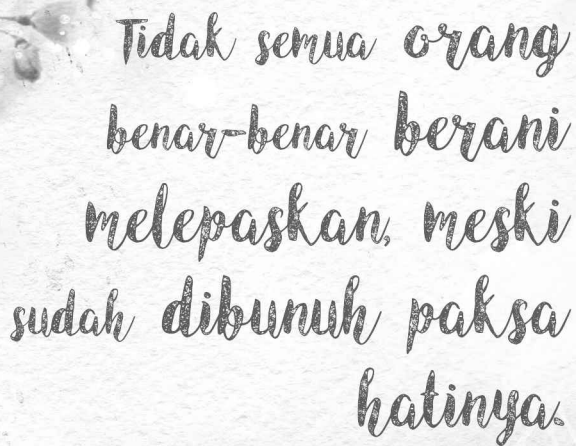 Tidak semua orang
benar-benar berani
melepaskan, meski
sudah dibunuh paksa
hatinya.